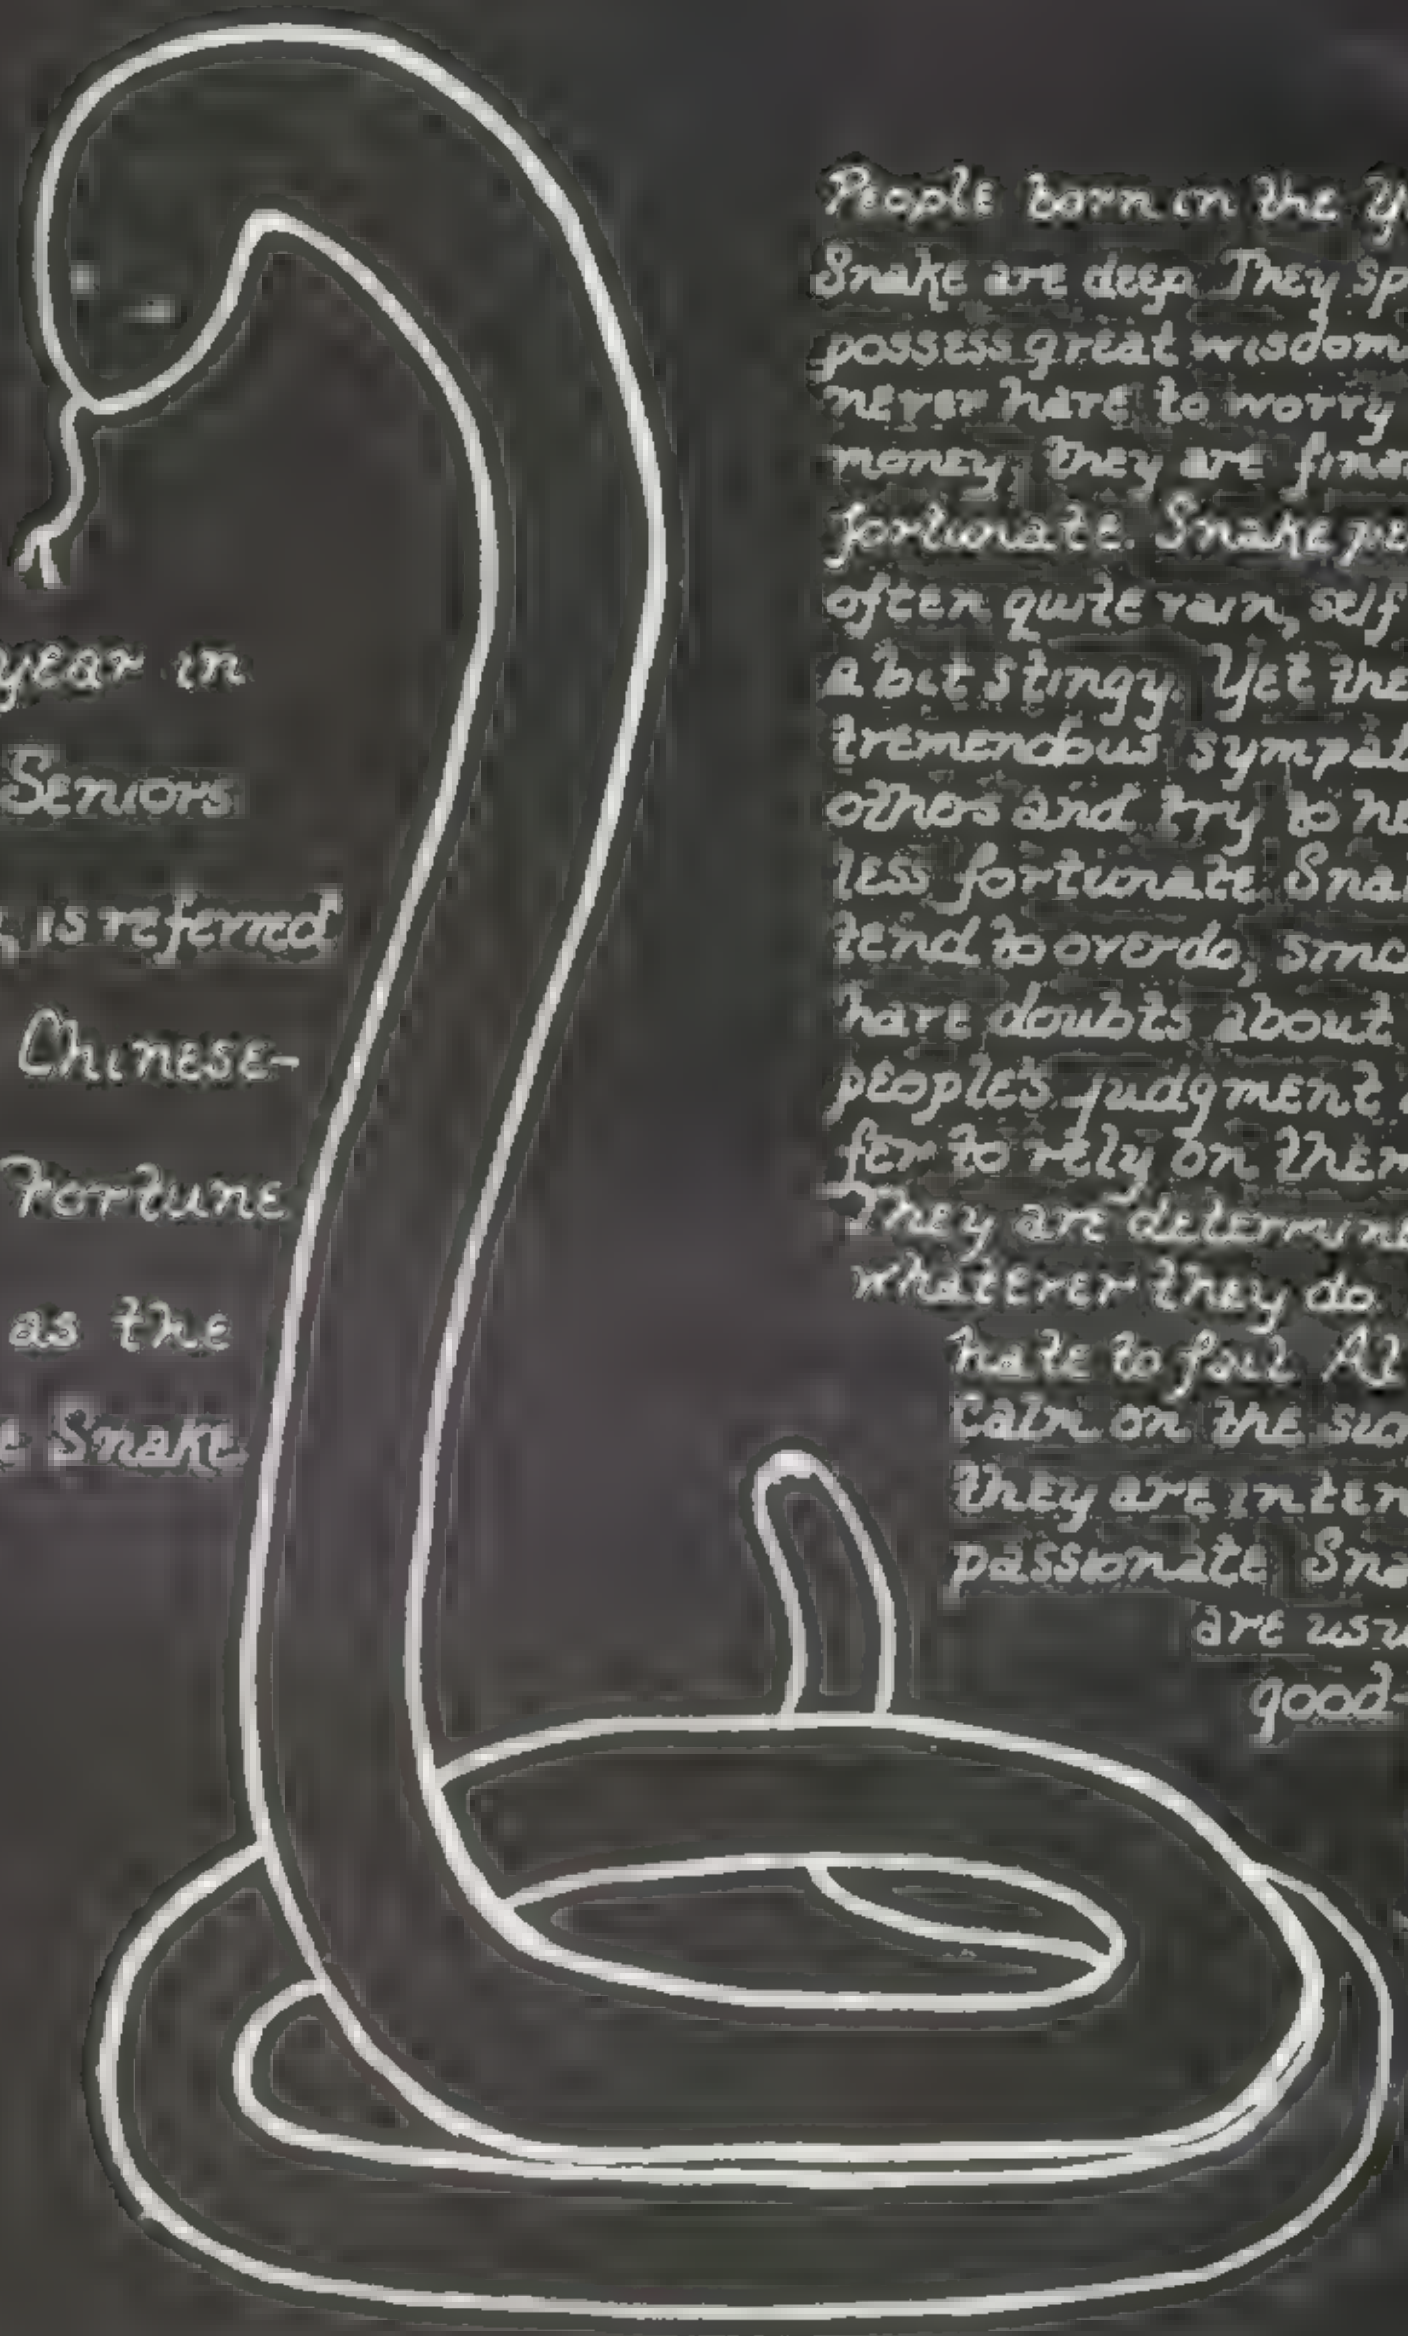 year in
Seniors
is referred
Chinese-
Fortune
as the
Snake
People born in the
Snake are deep. They
possess great wisdom
never have to worry
money, they are
fortunate. Snake
often quite vain, self
a bit stingy. Yet
tremendous
others and try to
less fortunate.
tend to overdo,
have doubts about
people's judgment
to rely on
They are
whatever they do.
hate to fail.
Calm on the
they are
passionate.
are
good-